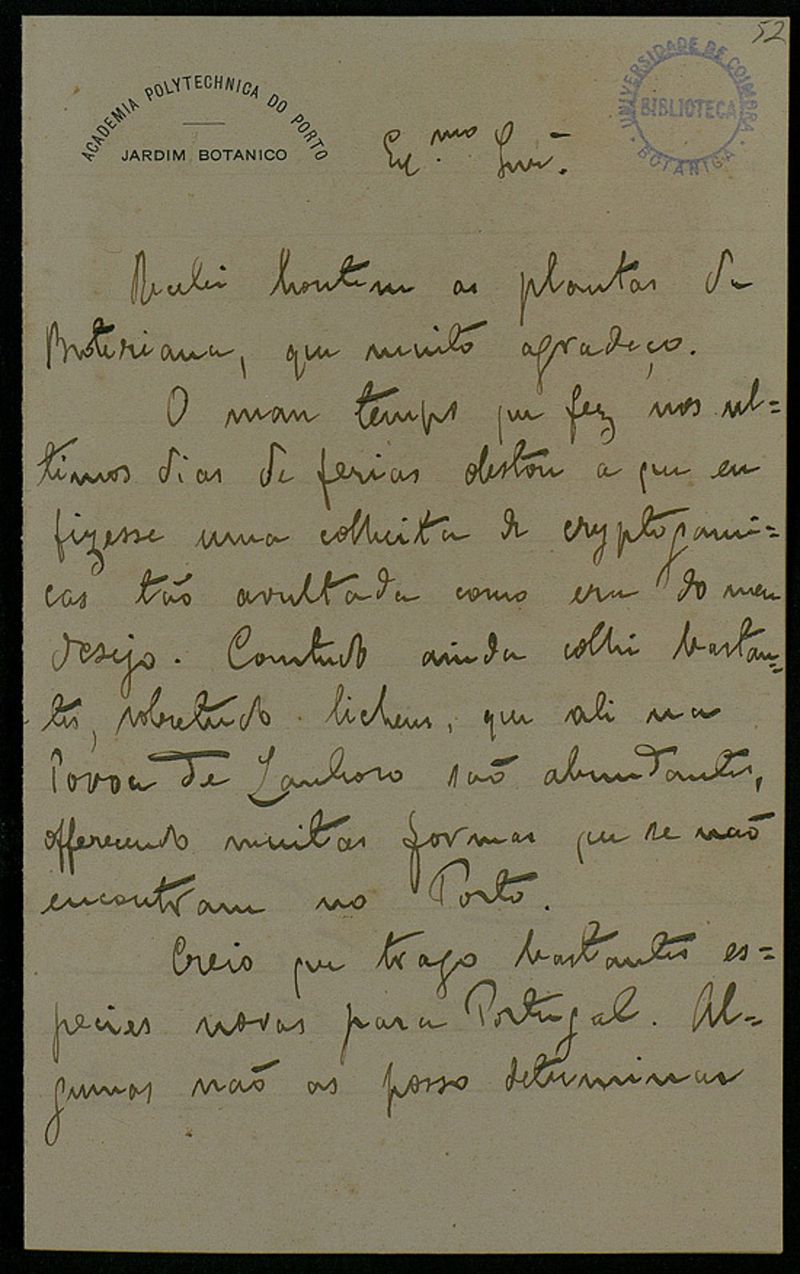 52
ACADEMIA POLYTECHNICA DO PORTO
JARDIM BOTANICO
UNIVERSIDADE DE COIMBRA
BIBLIOTECA
BOTANICA
Ex.mo Snr.
Recebi hontem as plantas da
Broteriana, que muito agradeço.
O mau tempo que fez nos ul=
timos dias de ferias obstou a que eu
fizesse uma colheita de cryptogami=
cas tão avultada como era do meu
desejo. Comtudo ainda colhi bastan=
tes, sobretudo lichens, que ali na
Povoa de Lanhoso são abundantes,
offerecendo muitas formas que se não
encontram no Porto.
Creio que trago bastantes es=
pecies novas para Portugal. Al=
gumas não as posso determinar